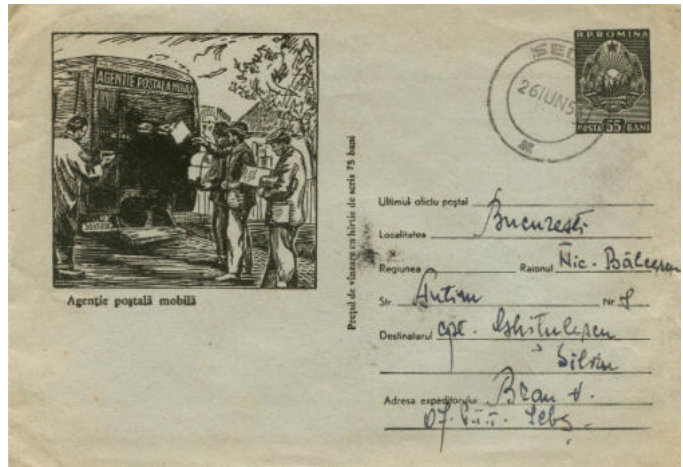 AGENTIE POSTALA MOBILA
Agenție poștală mobilă
Prețul de vînzare cu hîrtie de scris 75 bani
26 IUN
R.P.ROMINA
POSTA 55 BANI
Ultimul oficiu poștal
Localitatea București
Regiunea Raionul Nic. Bălcescu
Str. Antim Nr.
Destinatarul cpt.
Silviu
Adresa expeditorului Bran V.